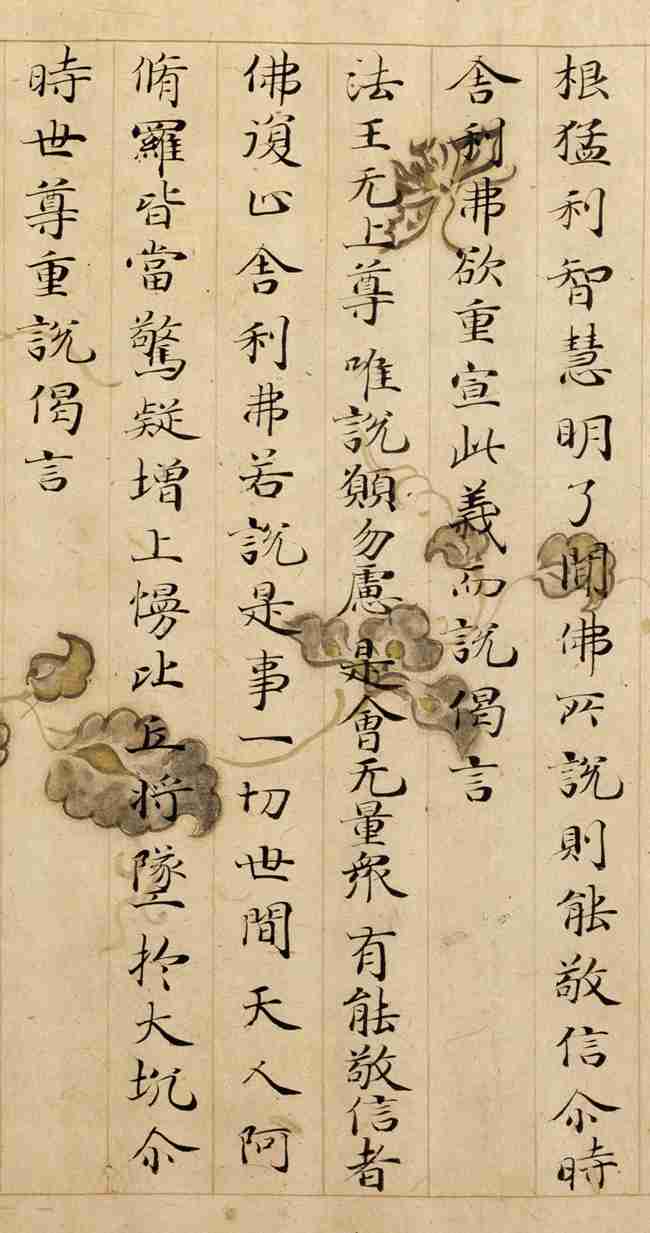 根猛利智慧明了聞佛所說則能敬信尒時
舎利弗欲重宣此義而說偈言
法王无上尊 唯說願勿慮 是會无量衆 有能敬信者
佛復止舎利弗若說是事一切世間天人阿
脩羅皆當驚疑増上慢比丘将墜於大坑尒
時世尊重說偈言